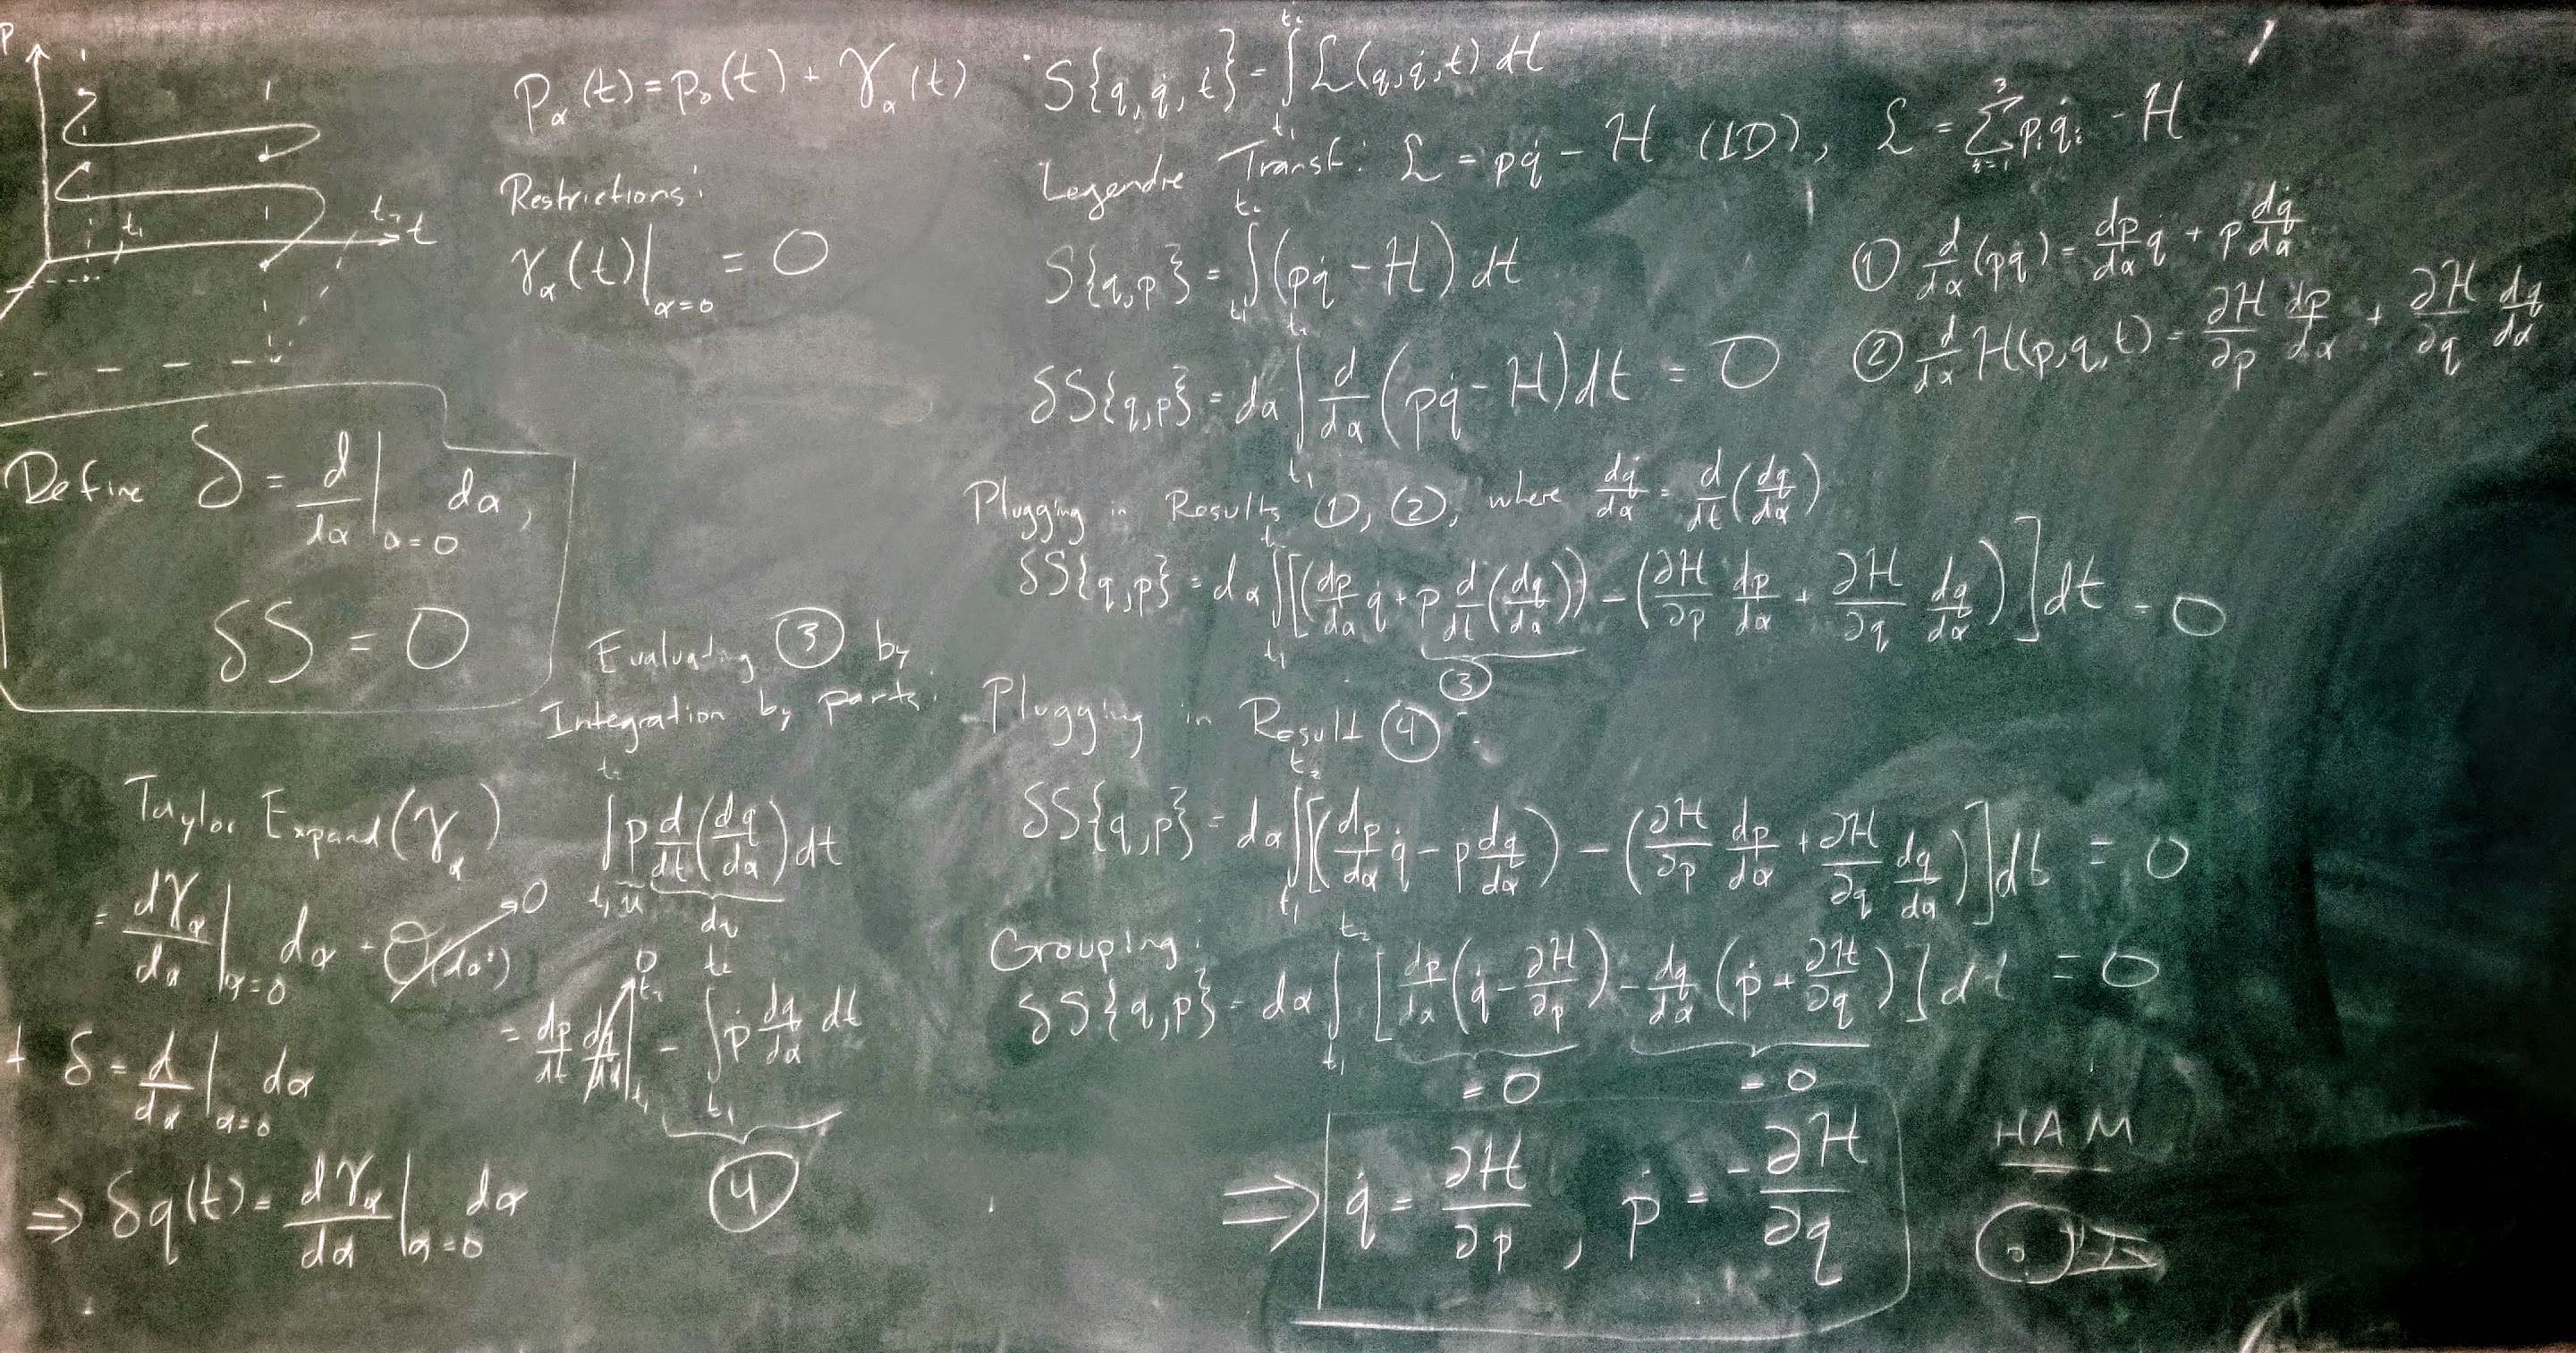 P
t₁
t₂
t
Define δ = d/dα |α=0 dα,
δS = 0
Taylor Expand(γα)
= dγα/dα |α=0 dα + O(dα²) → 0
+ δ = d/dα |α=0 dα
⇒ δq(t) = dγα/dα |α=0 dα
Pα(t) = p₀(t) + γα(t)
Restrictions:
γα(t)|α=0 = 0
Evaluating ③ by
Integration by parts:
∫t₁^t₂ p d/dt(dq/dα) dt
u dv
= dp/dt dq/dα |t₁^t₂ → 0 − ∫t₁^t₂ ṗ dq/dα dt
④
S{q, q̇, t} = ∫t₁^t₂ ℒ(q, q̇, t) dt
Legendre Transf: ℒ = pq̇ − H (1D), ℒ = Σi=1^3 pᵢq̇ᵢ − H
S{q,p} = ∫t₁^t₂ (pq̇ − H) dt
① d/dα (pq̇) = dp/dα q̇ + p dq̇/dα
δS{q,p} = dα ∫t₁^t₂ d/dα (pq̇ − H) dt = 0
② d/dα H(p,q,t) = ∂H/∂p dp/dα + ∂H/∂q dq/dα
Plugging in Results ①, ②, where dq̇/dα = d/dt (dq/dα)
δS{q,p} = dα ∫t₁^t₂ [(dp/dα q̇ + p d/dt(dq/dα)) − (∂H/∂p dp/dα + ∂H/∂q dq/dα)] dt = 0
③
Plugging in Result ④:
δS{q,p} = dα ∫t₁^t₂ [(dp/dα q̇ − ṗ dq/dα) − (∂H/∂p dp/dα + ∂H/∂q dq/dα)] dt = 0
Grouping:
δS{q,p} = dα ∫t₁^t₂ [dp/dα (q̇ − ∂H/∂p) − dq/dα (ṗ + ∂H/∂q)] dt = 0
= 0 = 0
⇒ q̇ = ∂H/∂p, ṗ = −∂H/∂q
HAM